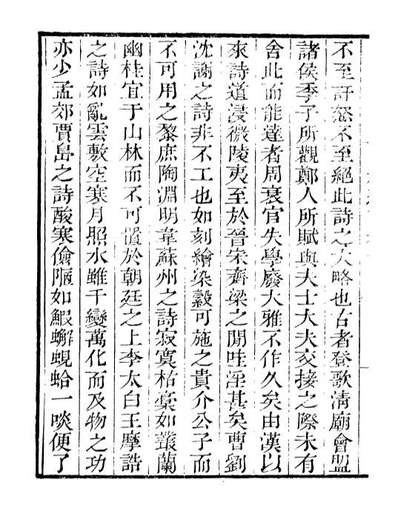 不至訐怒不至絕此詩之大略也古者登歌清廟會盟
諸侯季子所觀鄭人所賦與夫士大夫交接之際未有
舍此而能達者周衰官失學廢大雅不作久矣由漢以
來詩道浸微陵夷至於晉宋齊梁之間哇淫甚矣曹劉
沈謝之詩非不工也如刻繪染縠可施之貴介公子而
不可用之黎庶陶淵明韋蘇州之詩寂寞枯槁如叢蘭
幽桂宜于山林而不可置於朝廷之上李太白王摩詰
之詩如亂雲敷空寒月照水雖千變萬化而及物之功
亦少孟郊賈島之詩酸寒儉陋如鰕蠏蜆蛤一啖便了